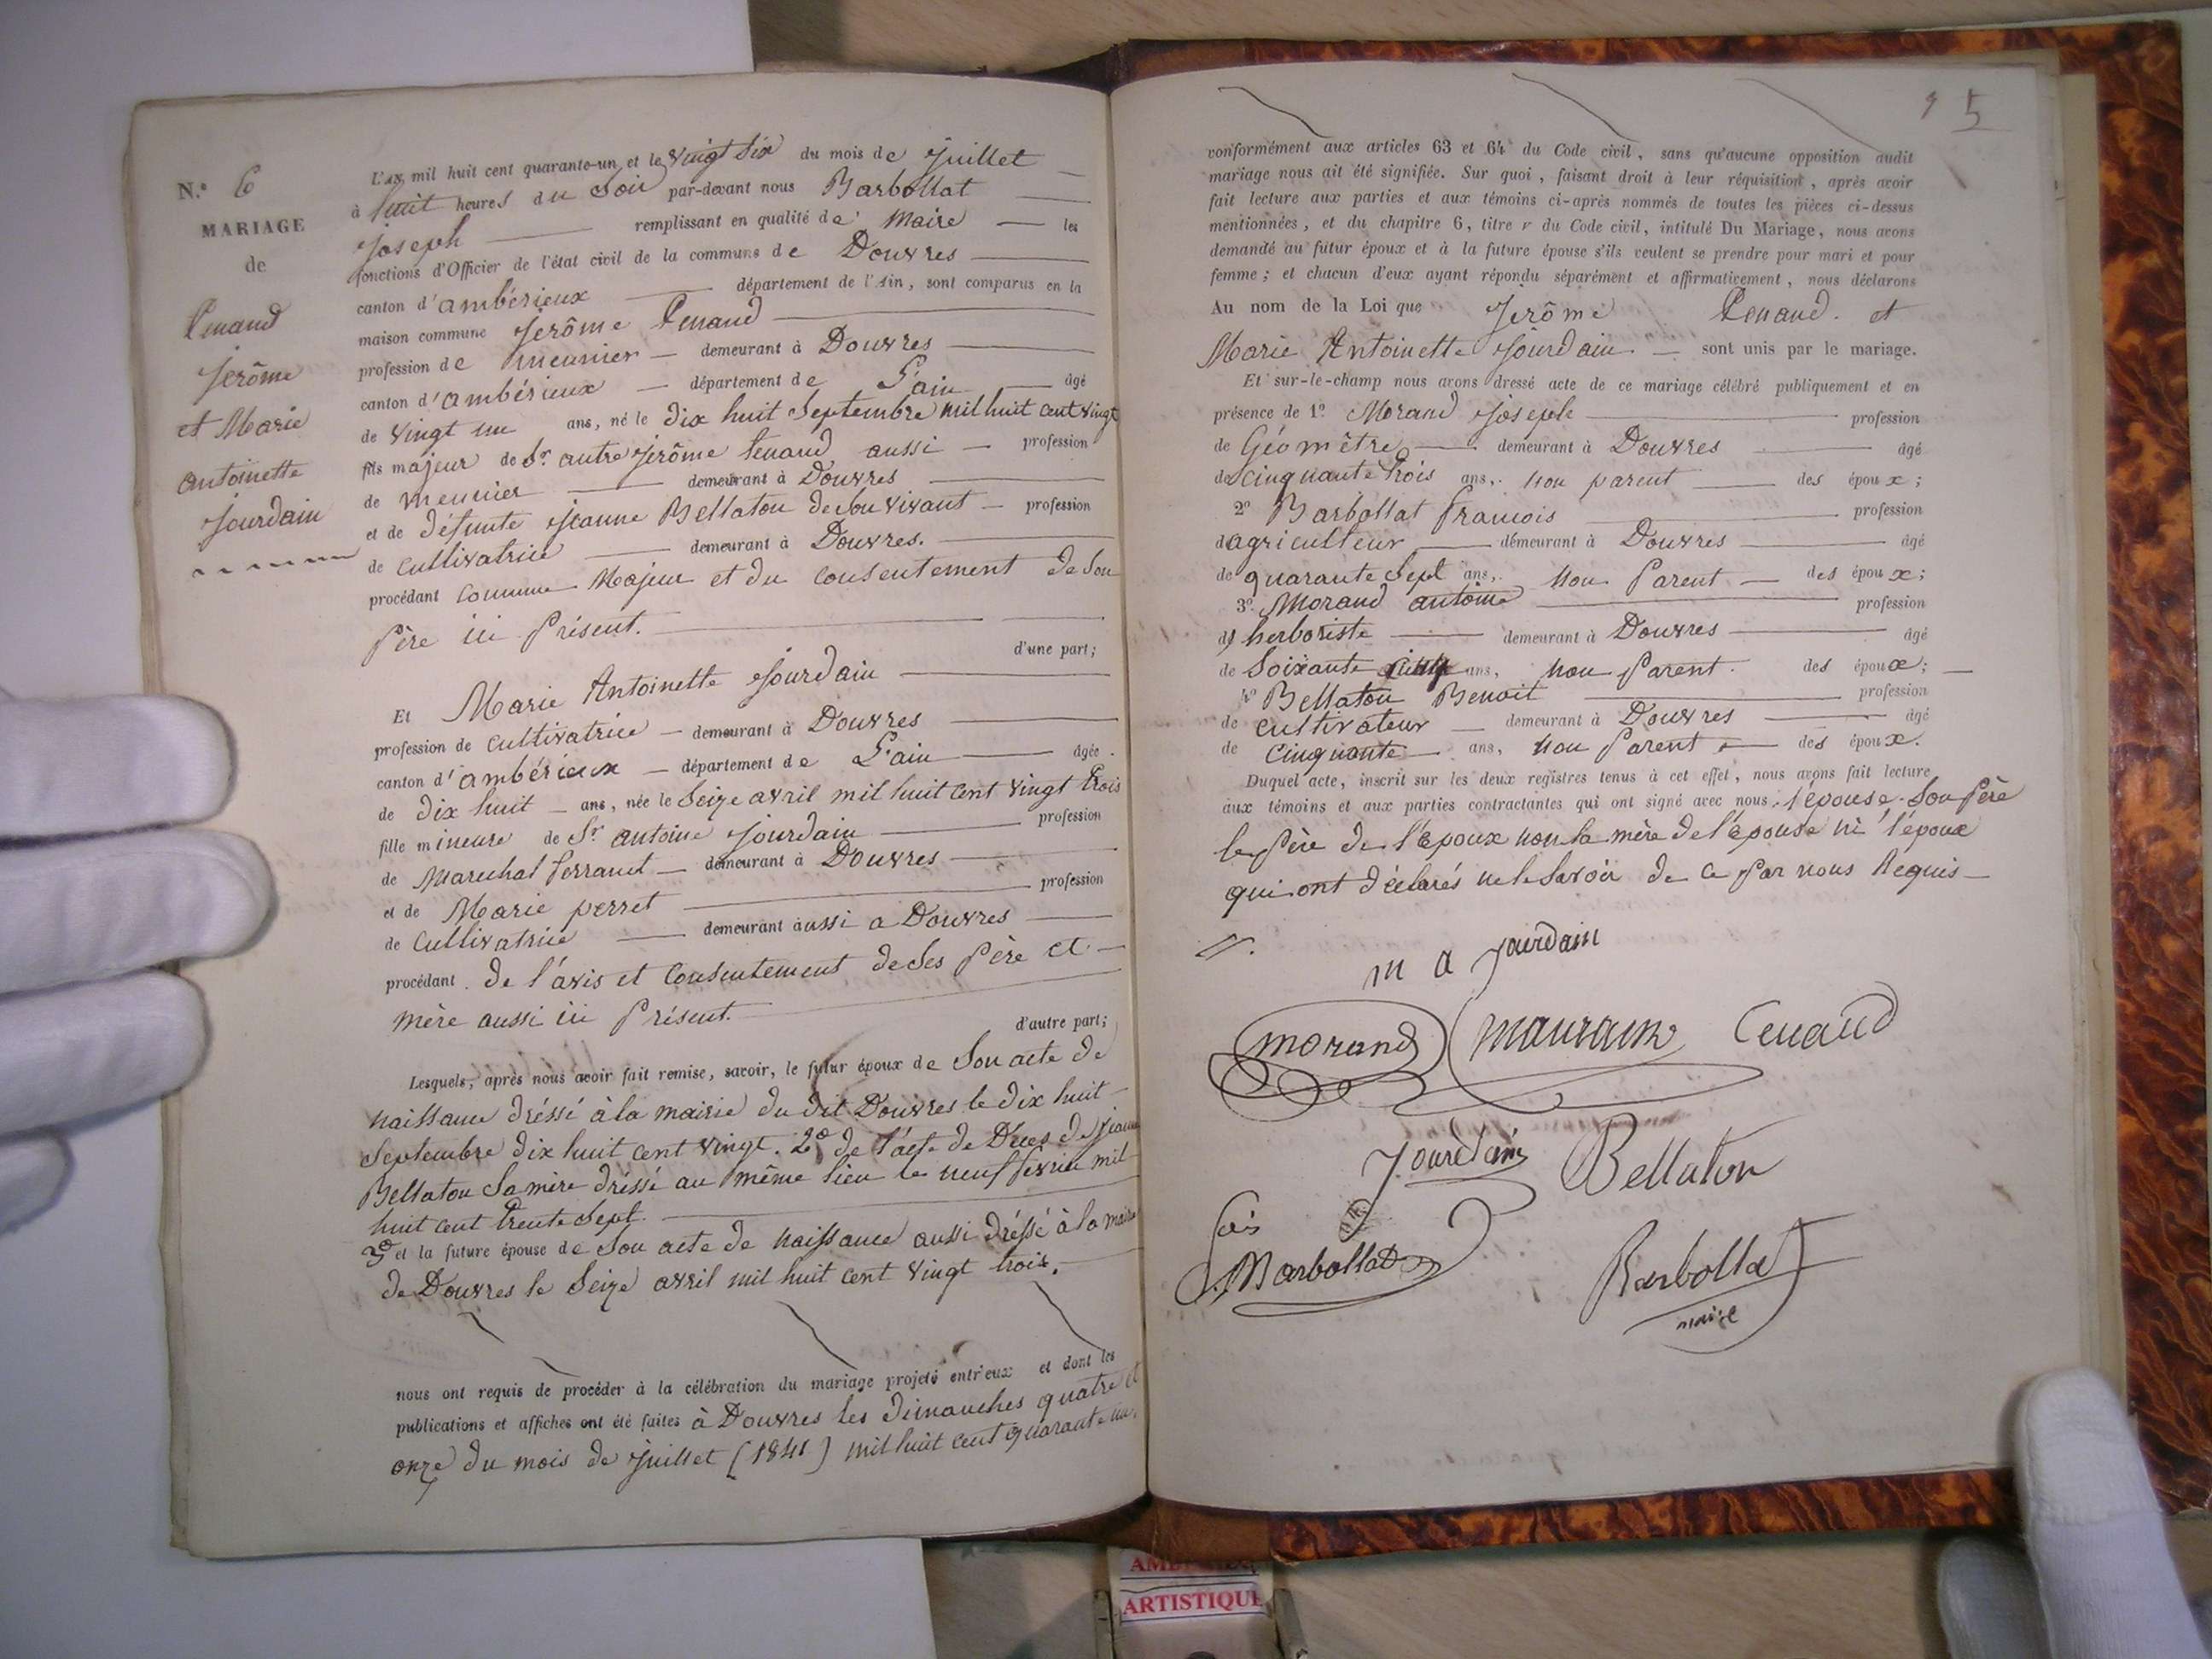 N.° 6
MARIAGE
de
Tenand
Jérôme
et Marie
antoinette
Jourdain
L'an mil huit cent quarante-un et le vingt six du mois de Juillet
à huit heures du soir par-devant nous Barbollat
Joseph remplissant en qualité de maire les
fonctions d'Officier de l'état civil de la commune de Douvres
canton d'ambérieux département de l'Ain, sont comparus en la
maison commune Jérôme Tenand
profession de meunier demeurant à Douvres
canton d'ambérieux département de L'ain âgé
de vingt un ans, né le dix huit Septembre mil huit cent vingt
fils majeur de Sr. autre Jérôme tenand aussi profession
de meunier demeurant à Douvres
et de défunte Jeanne Bellaton de son vivant profession
de cultivatrice demeurant à Douvres.
procédant comme Majeur et du consentement de son
Père ici Présent.
d'une part;
Et Marie Antoinette Jourdain
profession de cultivatrice demeurant à Douvres
canton d'ambérieux département de L'ain âgée
de dix huit ans, née le Seize avril mil huit cent vingt trois
fille mineure de Sr. antoine Jourdain profession
de Marechal ferrant demeurant à Douvres
et de Marie perret profession
de Cultivatrice demeurant aussi a Douvres
procédant de l'avis et Consentement de ses Père et
mère aussi ici Présent.
d'autre part;
Lesquels, après nous avoir fait remise, savoir, le futur époux de Son acte de
naissance dréssé à la mairie du dit Douvres le dix huit
Septembre dix huit cent vingt. 2° de l'acte de Déces de jeanne
Bellaton Sa mère dréssé au même lieu le neuf fevrier mil
huit cent trente sept.
3° et la future épouse de Son acte de naissance aussi dréssé à la mairie
de Douvres le Seize avril mil huit cent vingt trois.
nous ont requis de procéder à la célébration du mariage projeté entr'eux et dont les
publications et affiches ont été faites à Douvres les dimanches quatre et
onze du mois de Juillet (1841) mil huit cent quarante un.
5
conformément aux articles 63 et 64 du Code civil, sans qu'aucune opposition audit
mariage nous ait été signifiée. Sur quoi, faisant droit à leur réquisition, après avoir
fait lecture aux parties et aux témoins ci-après nommés de toutes les pièces ci-dessus
mentionnées, et du chapitre 6, titre v du Code civil, intitulé Du Mariage, nous avons
demandé au futur époux et à la future épouse s'ils veulent se prendre pour mari et pour
femme; et chacun d'eux ayant répondu séparément et affirmativement, nous déclarons
Au nom de la Loi que Jérôme Tenand. et
Marie Antoinette Jourdain sont unis par le mariage.
Et sur-le-champ nous avons dressé acte de ce mariage célébré publiquement et en
présence de 1° Morand Joseph profession
de Géomètre demeurant à Douvres âgé
de cinquante trois ans, non parent des époux;
2° Barbollat francois profession
d'agriculteur demeurant à Douvres âgé
de quarante Sept ans, non Parent des époux;
3° Morand antoine profession
d'herboriste demeurant à Douvres âgé
de Soixante cinq ans, non Parent. des époux;
4° Bellaton Benoit profession
de cultivateur demeurant à Douvres âgé
de Cinquante ans, non Parent des époux.
Duquel acte, inscrit sur les deux registres tenus à cet effet, nous avons fait lecture
aux témoins et aux parties contractantes qui ont signé avec nous, l'épouse. Son Père
le Père de l'Epoux non la mère de l'épouse ni l'époux
qui ont déclarés ne le Savoir de ce Par nous Requis
m a jourdain
morand mauraint Tenaud
Jourdain Bellaton
fois
Barbollat Barbollat
maire
ARTISTIQUE